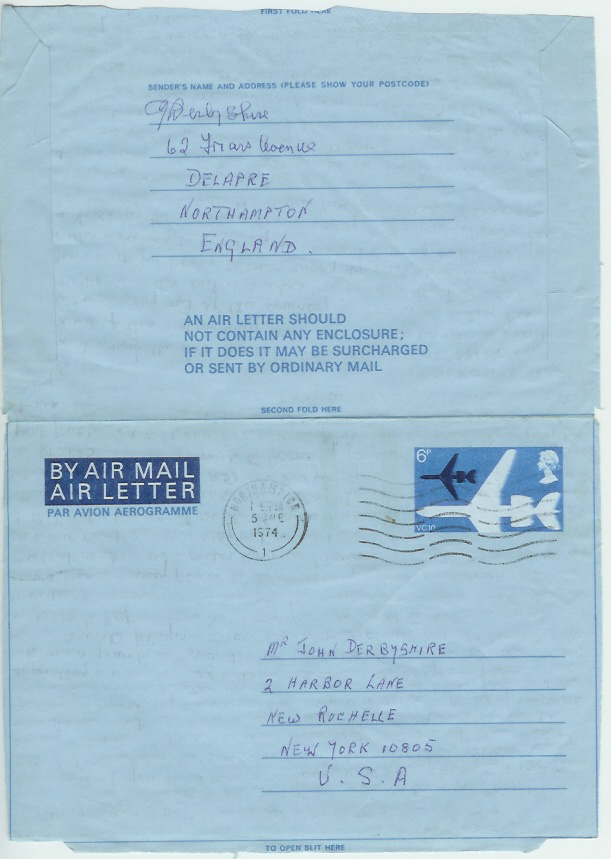 FIRST FOLD HERE
SENDER'S NAME AND ADDRESS (PLEASE SHOW YOUR POSTCODE)
Derbyshire
62 Friars Avenue
DELAPRE
NORTHAMPTON
ENGLAND.
AN AIR LETTER SHOULD
NOT CONTAIN ANY ENCLOSURE;
IF IT DOES IT MAY BE SURCHARGED
OR SENT BY ORDINARY MAIL
SECOND FOLD HERE
BY AIR MAIL
AIR LETTER
PAR AVION AEROGRAMME
NORTHAMPTON
5
1974
1
6P
VC10
MR JOHN DERBYSHIRE
2 HARBOR LANE
NEW ROCHELLE
NEW YORK 10805
U.S.A
TO OPEN SLIT HERE